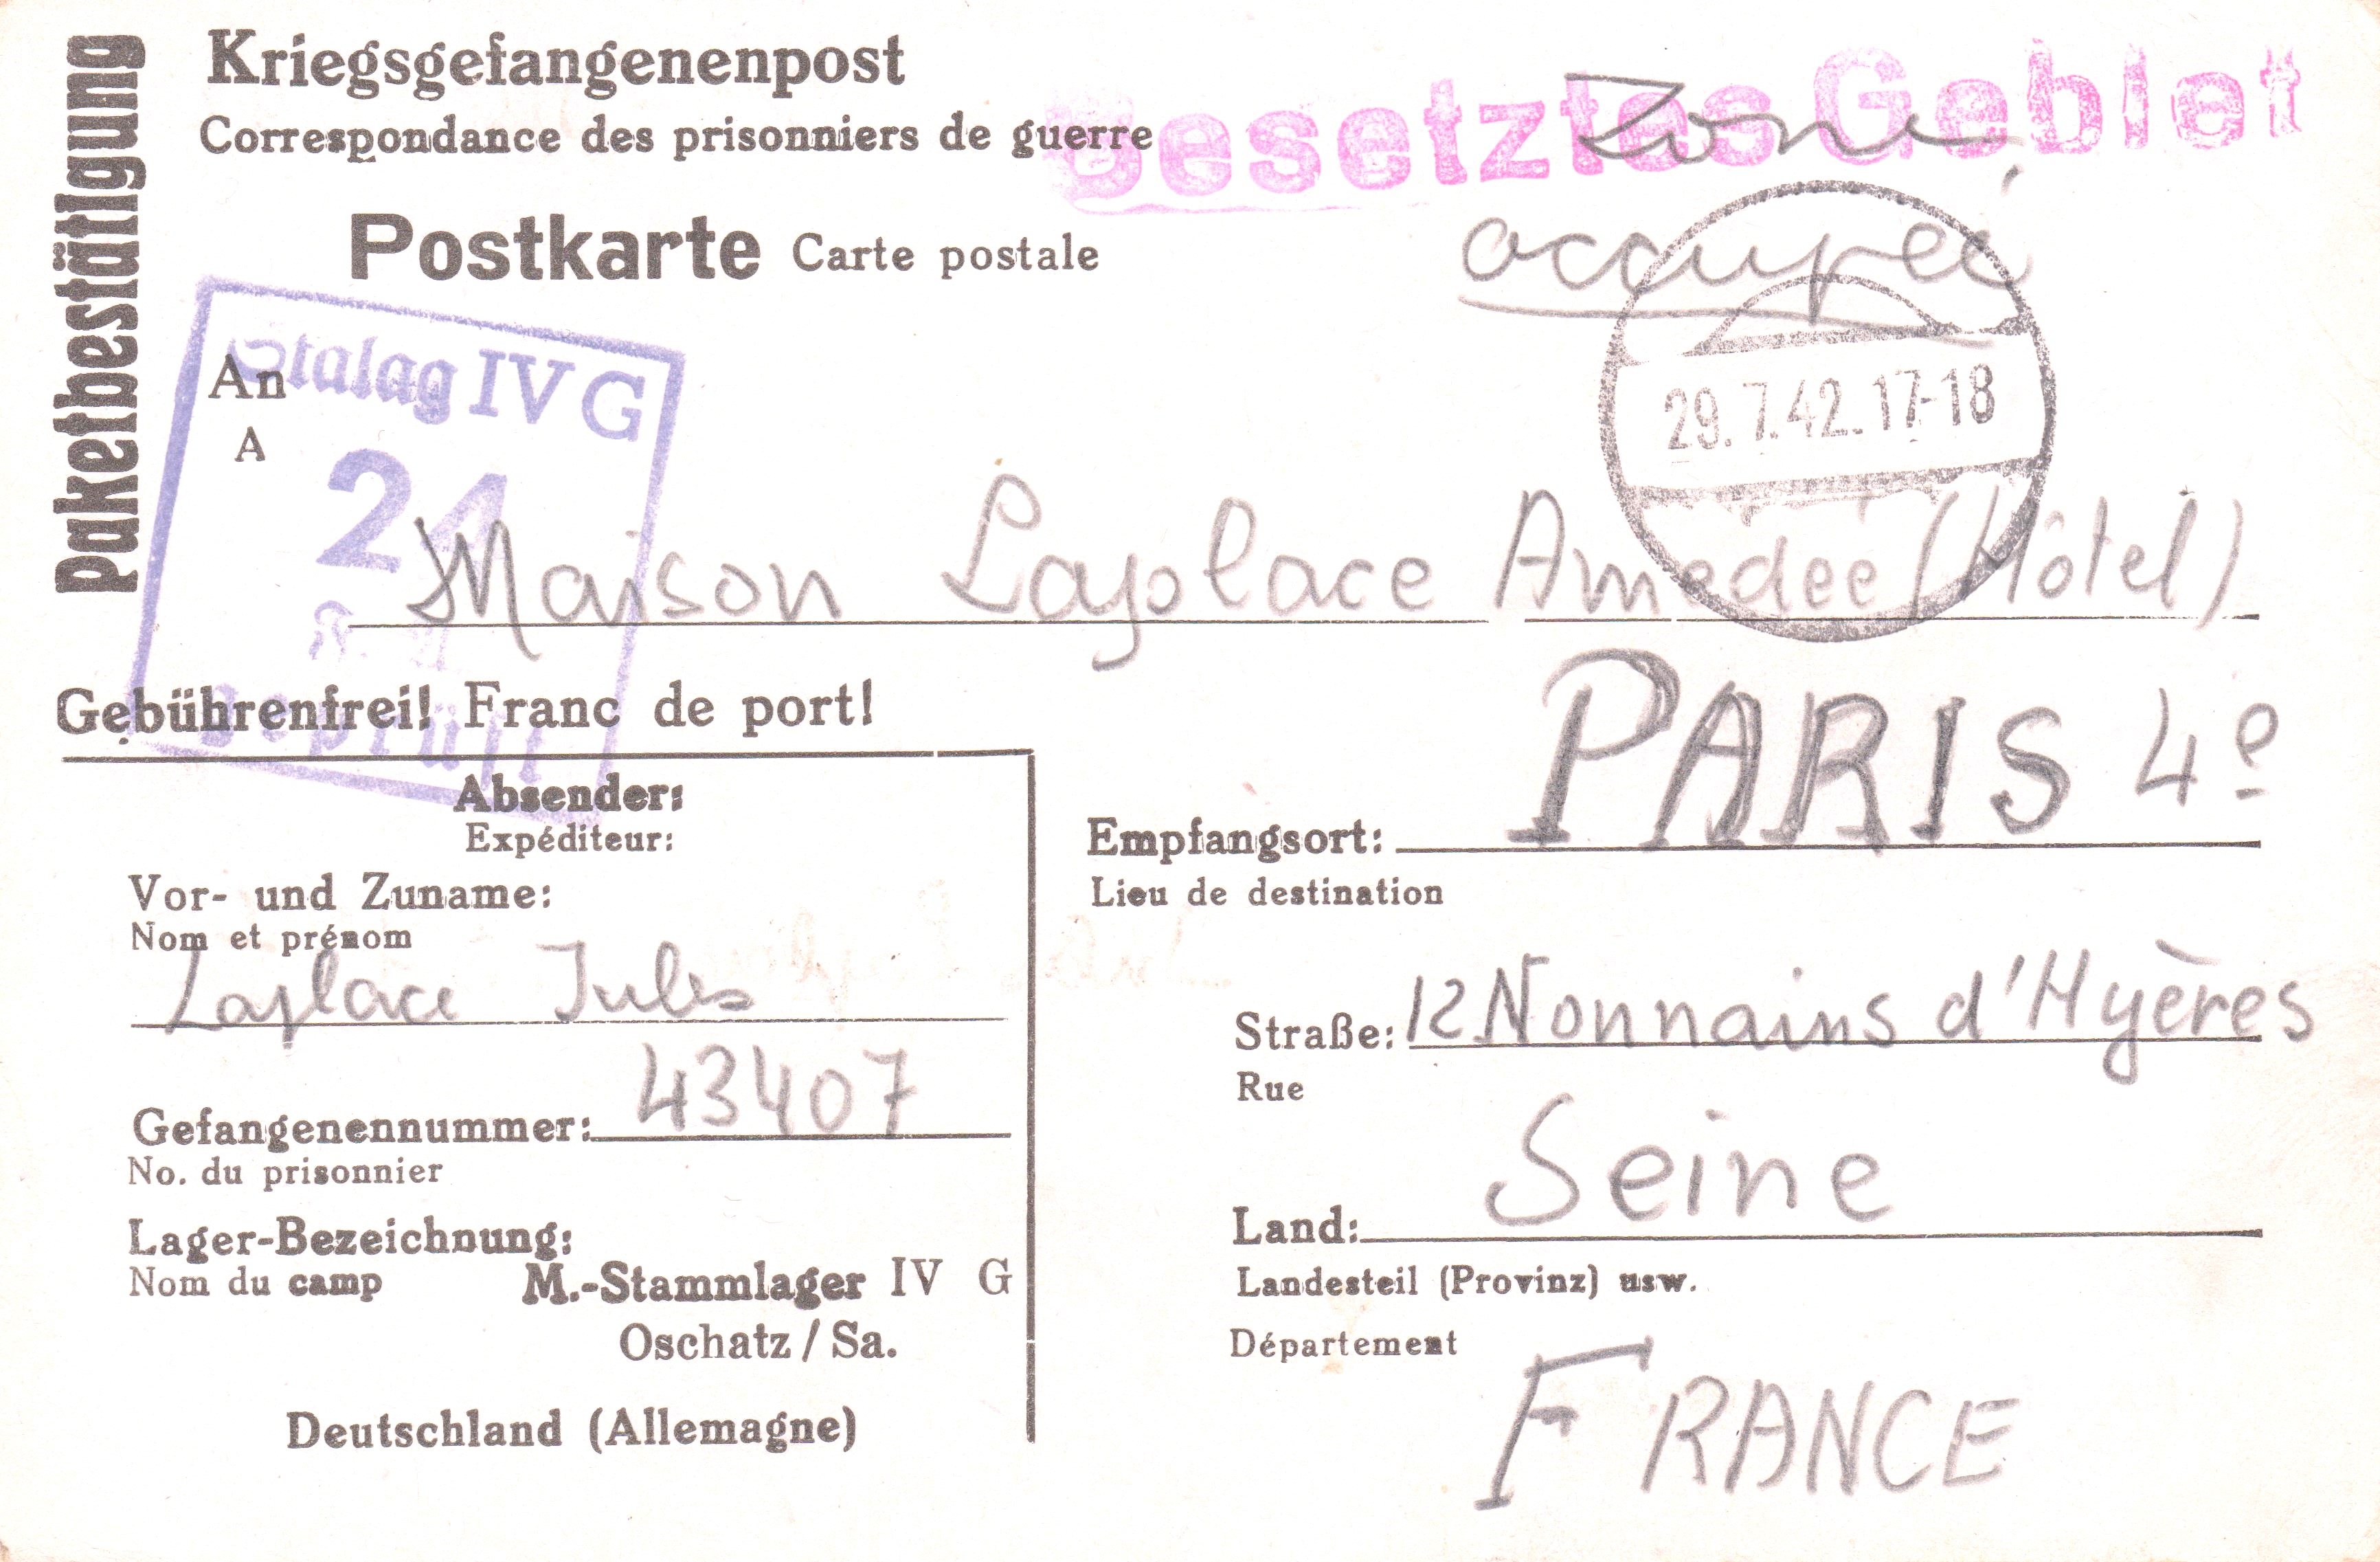 Paketbestätigung
Kriegsgefangenenpost
Correspondance des prisonniers de guerre
Besetztes Gebiet
Zone
occupée
Postkarte Carte postale
Stalag IV G
24
geprüft
29.7.42.17-18
An
A
Maison Laplace Amedée (Hôtel)
Gebührenfrei! Franc de port!
Absender:
Expéditeur:
Vor- und Zuname:
Nom et prénom
Laplace Jules
Gefangenennummer: 43407
No. du prisonnier
Lager-Bezeichnung:
Nom du camp
M.-Stammlager IV G
Oschatz / Sa.
Deutschland (Allemagne)
Empfangsort: PARIS 4e
Lieu de destination
Straße: 12 Nonnains d'Hyères
Rue
Land: Seine
Landesteil (Provinz) usw.
Département
FRANCE